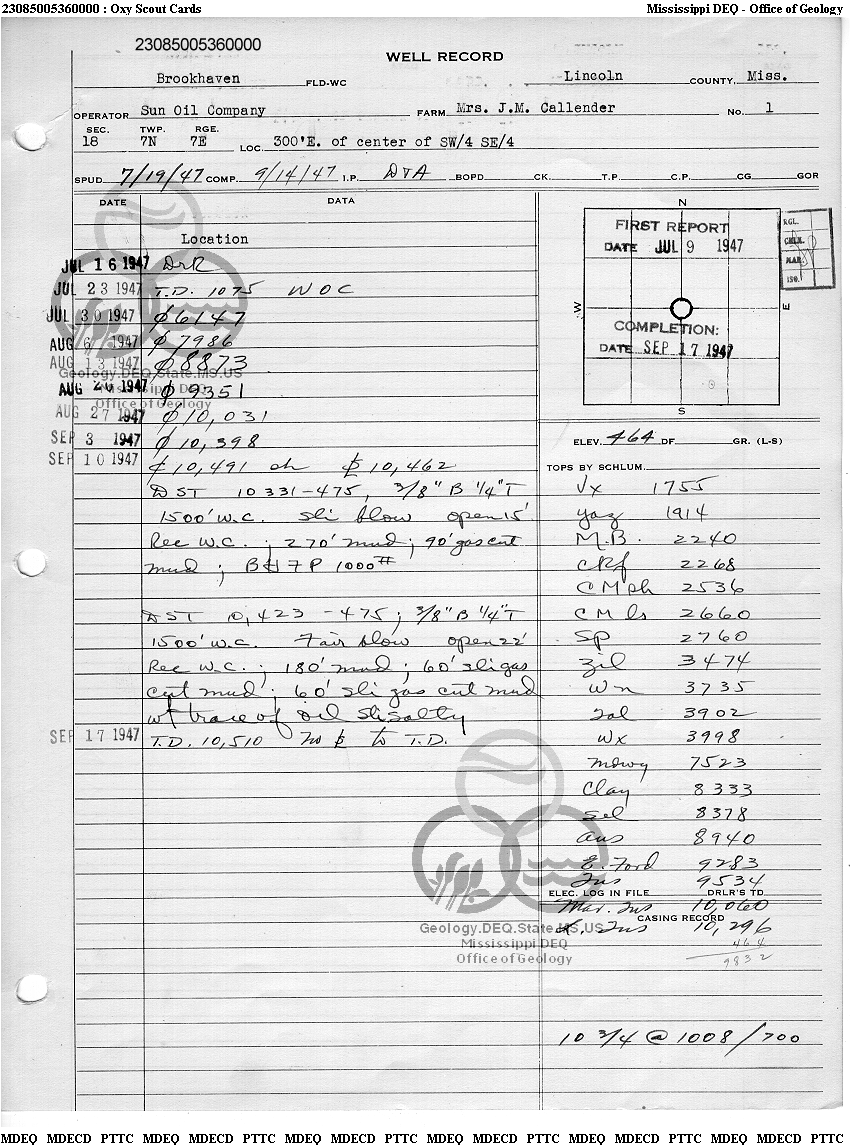 23085005360000 : Oxy Scout Cards Mississippi DEQ - Office of Geology
23085005360000
WELL RECORD
Brookhaven FLD-WC Lincoln COUNTY, Miss.
OPERATOR Sun Oil Company FARM Mrs. J.M. Callender No. 1
SEC. TWP. RGE.
18 7N 7E LOC. 300'E. of center of SW/4 SE/4
SPUD 7/19/47 COMP. 9/14/47 I.P. D&A BOPD CK. T.P. C.P. CG GOR
DATE DATA
Location
JUL 16 1947 DrR
JUL 23 1947 T.D. 1075 WOC
JUL 30 1947 ₵ 6147
AUG 6 1947 ₵ 7986
AUG 13 1947 ₵ 8873
AUG 20 1947 ₵ 9351
AUG 27 1947 ₵ 10,031
SEP 3 1947 ₵ 10,398
SEP 10 1947 ₵ 10,491 ch 10,462
DST 10331-475, 3/8" B 1/4" T
1500' W.C. sli blow open 15'
Rec W.C. ; 270' mud ; 90' gas cut
mud ; BHFP 1000#
DST 10,423 - 475 ; 3/8" B 1/4" T
1500' W.C. Fair blow open 22'
Rec W.C. ; 180' mud ; 60' sli gas
cut mud ; 60' sli gas cut mud
w/ trace of oil sli salty
SEP 17 1947 T.D. 10,510 No to T.D.
N
FIRST REPORT
DATE JUL 9 1947
W E
COMPLETION:
DATE SEP 17 1947
S
RGL.
CHLK.
MAR.
ISO.
ELEV. 464 DF. GR. (L-S)
TOPS BY SCHLUM.
Vx 1755
Yaz 1914
M.B. 2240
CRf 2268
CM sh 2536
CM ls 2660
Sp 2760
Zil 3474
Wn 3735
Tal 3902
Wx 3998
mdwy 7523
Clay 8333
Sel 8378
Aus 8940
E. Ford 9283
Tus 9534
ELEC. LOG IN FILE DRLR'S TD
Mar. Tus 10,060
CASING RECORD
L. Tus 10,296
464
9832
10 3/4 @ 1008/700
Geology.DEQ.State.MS.US
Mississippi DEQ
Office of Geology
Geology.DEQ.State.MS.US
Mississippi DEQ
Office of Geology
MDEQ MDECD PTTC MDEQ MDECD PTTC MDEQ MDECD PTTC MDEQ MDECD PTTC MDEQ MDECD PTTC MDEQ MDECD PTTC